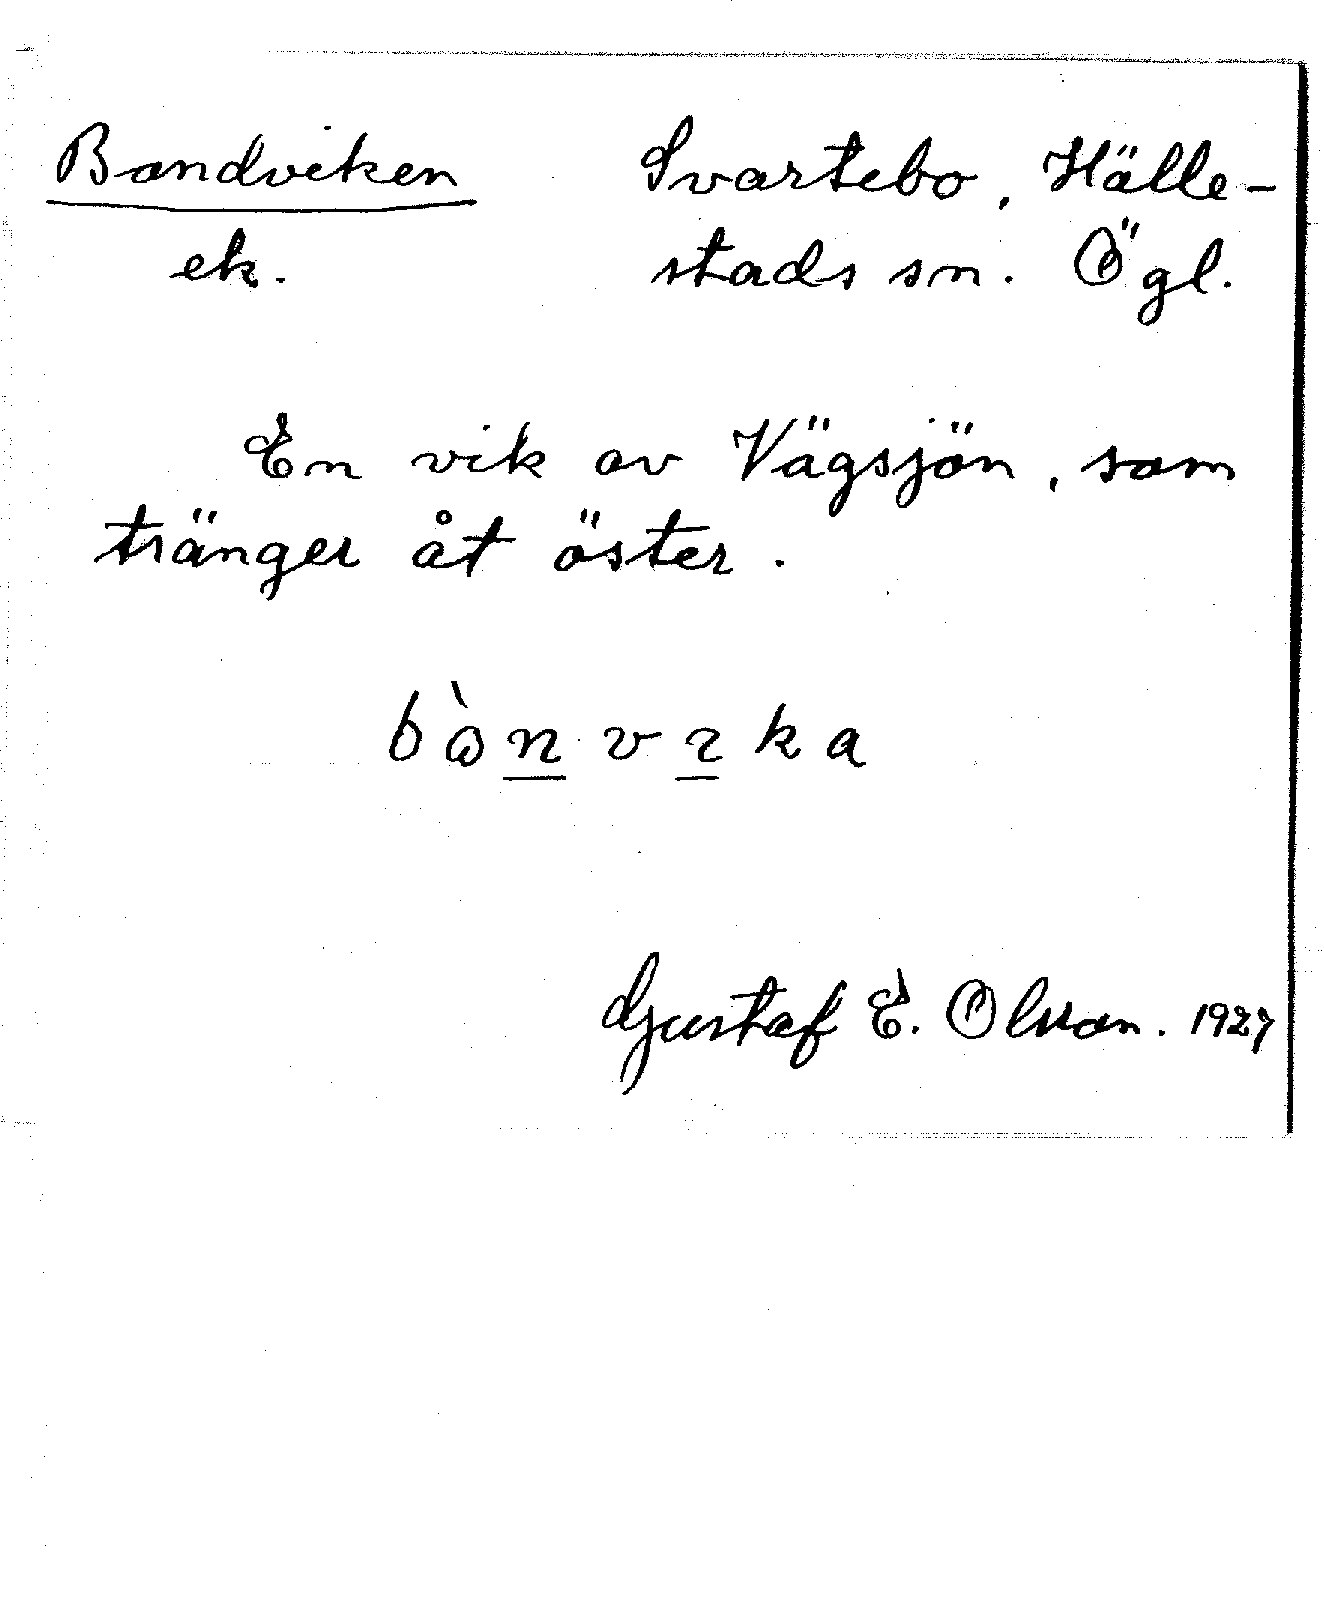 Bandviken Svartebo, Hälle-
ek. stads sn. Ögl.
En vik av Vägsjön, som
tränger åt öster.
bànvıka
Gustaf E. Olsson. 1927